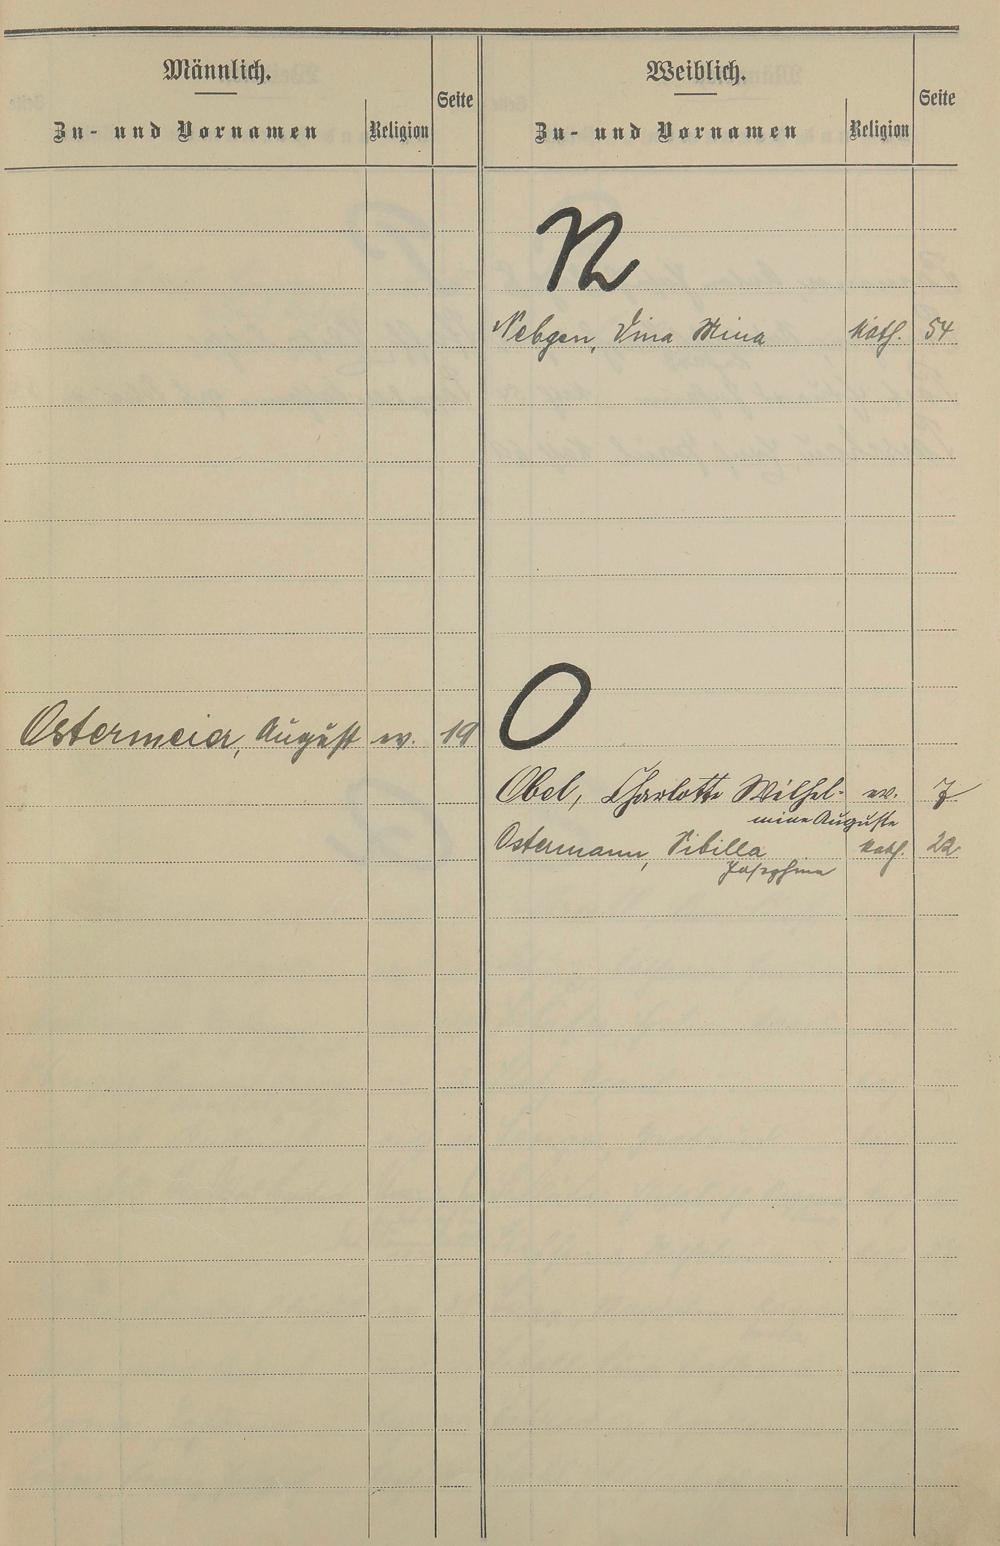 Männlich.
Zu- und Vornamen
Religion
Seite
Weiblich.
Zu- und Vornamen
Religion
Seite
N
Nebgen, Mina kath. 54
O
Ostermeier, August ev. 19
Obel, Charlotte Wilhel- ev. 7
mine Auguste
Ostermann, Sibilla kath. 22
Josephina